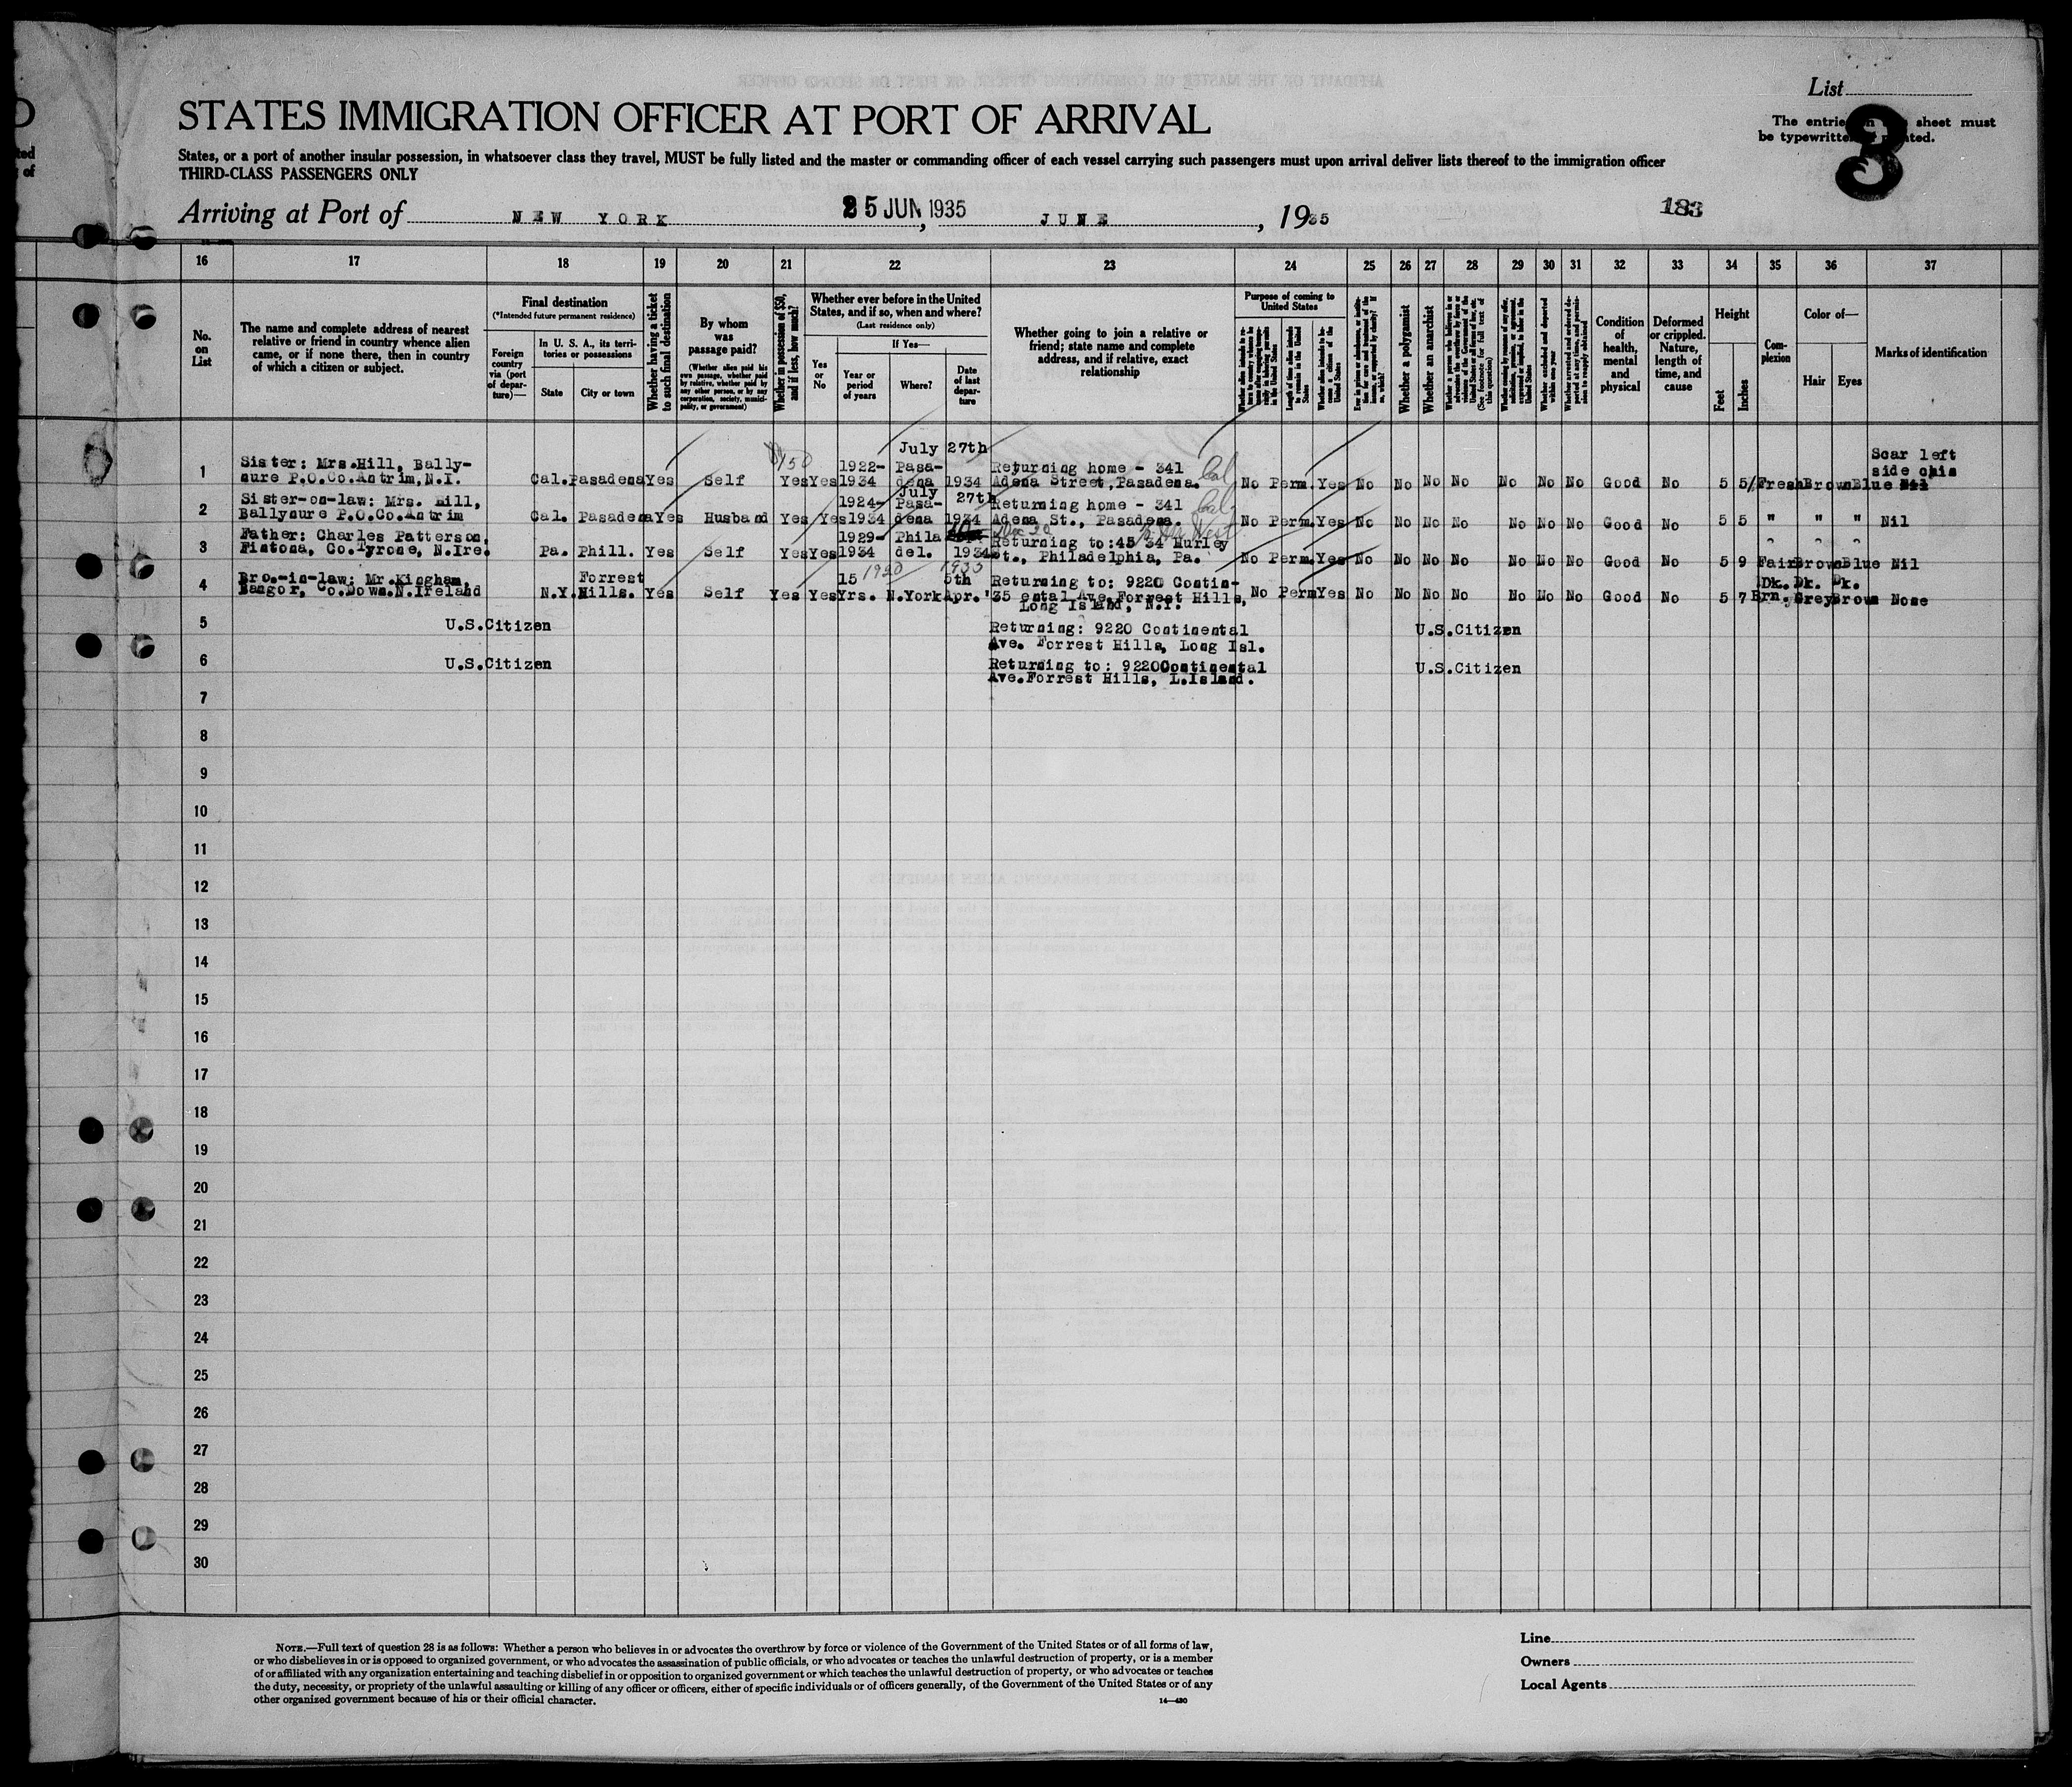 List
STATES IMMIGRATION OFFICER AT PORT OF ARRIVAL
The entries sheet must
be typewritten
3
States, or a port of another insular possession, in whatsoever class they travel, MUST be fully listed and the master or commanding officer of each vessel carrying such passengers must upon arrival deliver lists thereof to the immigration officer
THIRD-CLASS PASSENGERS ONLY
Arriving at Port of NEW YORK, 25 JUN 1935 JUNE, 1935
183
16 17 18 19 20 21 22 23 24 25 26 27 28 29 30 31 32 33 34 35 36 37
No.
on
List
The name and complete address of nearest
relative or friend in country whence alien
came, or if none there, then in country
of which a citizen or subject.
Final destination
(*Intended future permanent residence)
Foreign
country
via (port
of depar-
ture)—
In U. S. A., its terri-
tories or possessions
State
City or town
Whether having a ticket
to such final destination
By whom
was
passage paid?
(Whether alien paid his
own passage, whether paid
by relative, whether paid by
any other person, or by any
corporation, society, munici-
pality, or government)
Whether in possession of $50,
and if less, how much?
Whether ever before in the United
States, and if so, when and where?
(Last residence only)
Yes
or
No
If Yes—
Year or
period
of years
Where?
Date
of last
depar-
ture
Whether going to join a relative or
friend; state name and complete
address, and if relative, exact
relationship
Purpose of coming to
United States
Length of time alien intends
to remain in the United
States
Whether alien intends to be-
come a citizen of the
United States
Whether a polygamist
Whether an anarchist
(See footnote for full text of
this question)
Condition
of
health,
mental
and
physical
Deformed
or crippled.
Nature,
length of
time, and
cause
Height
Feet
Inches
Com-
plexion
Color of—
Hair
Eyes
Marks of identification
1 Sister: Mrs.Hill, Bally-
nure P.O.Co.Antrim,N.I. Cal. Pasadena Yes Self $150 Yes Yes 1922-1934 Pasadena July 27th 1934 Returning home - 341
Adena Street,Pasadena. Cal No Perm. Yes No No No No No No No Good No 5 5½ Fresh Brown Blue Nil Scar left
side chin
2 Sister-on-law: Mrs. Hill,
Ballynure P.O.Co.Antrim Cal. Pasadena Yes Husband Yes Yes 1924-1934 Pasadena July 27th 1934 Returning home - 341
Adena St., Pasadena. Cal. No Perm. Yes No No No No No No No Good No 5 5 " " " Nil
3 Father: Charles Patterson,
Fintona, Co.Tyrone, N.Ire. Pa. Phill. Yes Self Yes Yes 1929-1934 Philadel. 1934 Returning to:45 34 Hurley
St., Philadelphia, Pa. No Perm. Yes No No No No No No No Good No 5 9 Fair Brown Blue Nil
4 Bro.-in-law: Mr.Kingham,
Bangor, Co.Down.N.Ireland N.Y. Forrest Hills. Yes Self Yes Yes 15 Yrs. 1920 N.York 1935 5th Apr.'35 Returning to: 9220 Contin-
ental Ave.Forrest Hills,
Long Island, N.Y. No Perm Yes No No No No No No No Good No 5 7 Dk. Brn. Dk. Grey Dk. Brown None
5 U.S.Citizen Returning: 9220 Continental
Ave. Forrest Hills, Long Isl. U.S.Citizen
6 U.S.Citizen Returning to: 9220Continental
Ave.Forrest Hills, L.Island. U.S.Citizen
7
8
9
10
11
12
13
14
15
16
17
18
19
20
21
22
23
24
25
26
27
28
29
30
NOTE.—Full text of question 28 is as follows: Whether a person who believes in or advocates the overthrow by force or violence of the Government of the United States or of all forms of law,
or who disbelieves in or is opposed to organized government, or who advocates the assassination of public officials, or who advocates or teaches the unlawful destruction of property, or is a member
of or affiliated with any organization entertaining and teaching disbelief in or opposition to organized government or which teaches the unlawful destruction of property, or who advocates or teaches
the duty, necessity, or propriety of the unlawful assaulting or killing of any officer or officers, either of specific individuals or of officers generally, of the Government of the United States or of any
other organized government because of his or their official character.
14—430
Line
Owners
Local Agents